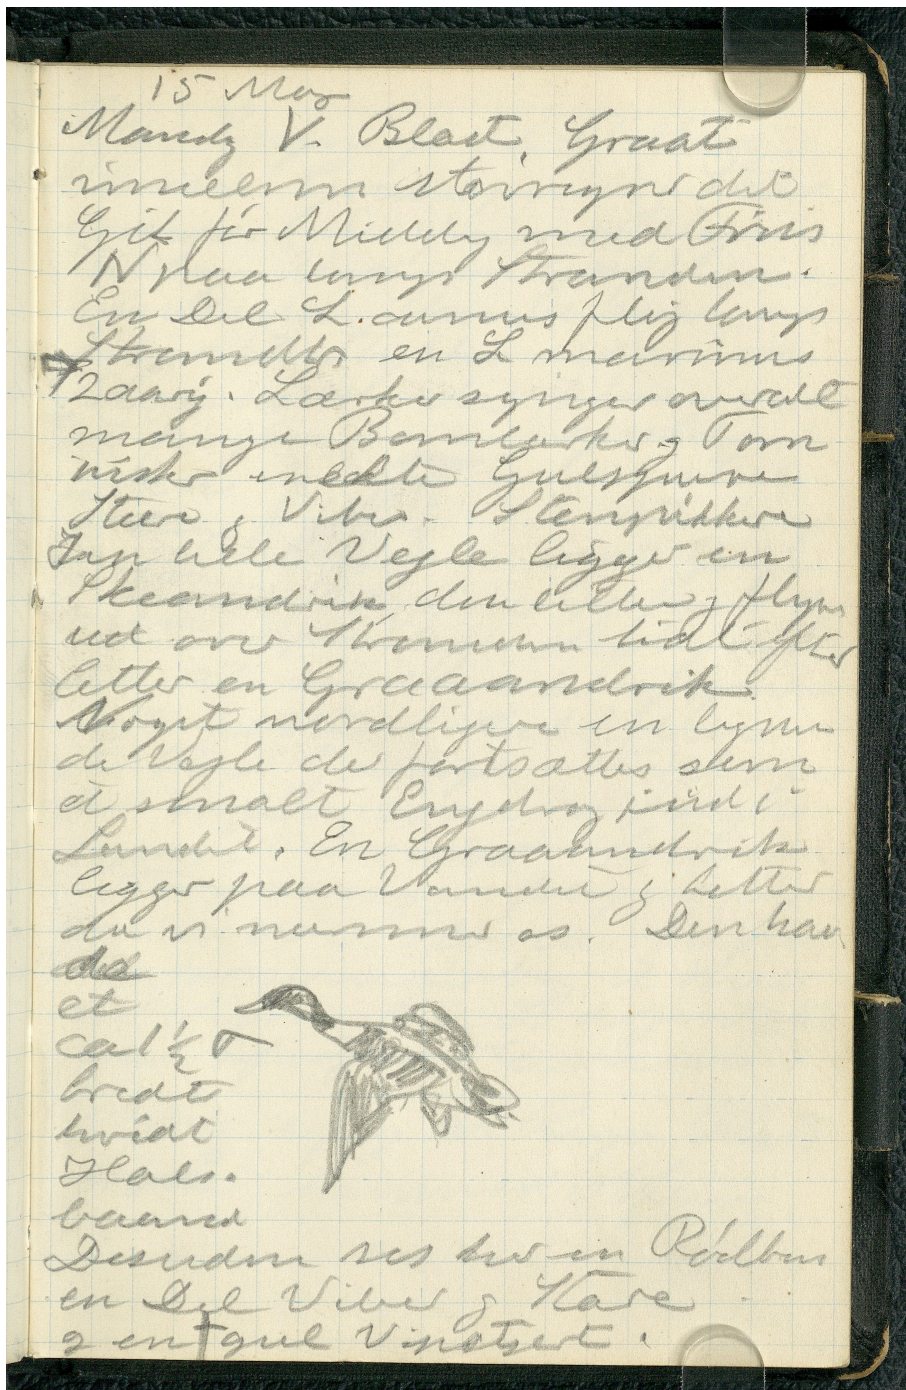 15 Maj
Mandg V. Blæst, Graat
imellem støvregner det
Gik før Middg med Friis
N paa langs Stranden.
En Del L. canus fløj langs
Stranden en L marinus
2aarig. Lærker synger overalt
mange Bomlærker og Torn
irisker enkelte Gulspurve
Stære og Viber. Stenpikkere
I en lille Vejle ligger en
Skeandrik, den letter og flyver
ud over Stranden lidt efter
letter en Graaandrik.
Noget nordligere en lignen
de Vejle der fortsættes som
et smalt Engdrag ind i
Landet. En Graaandrik
ligger paa Vandet og letter
da vi nærmer os. Den hav
de
et
ca 1½
bredt
hvidt
Hals-
baand
Desuden ses her en Rødben
en Del Viber og Stære
og en gul Vipstjert.